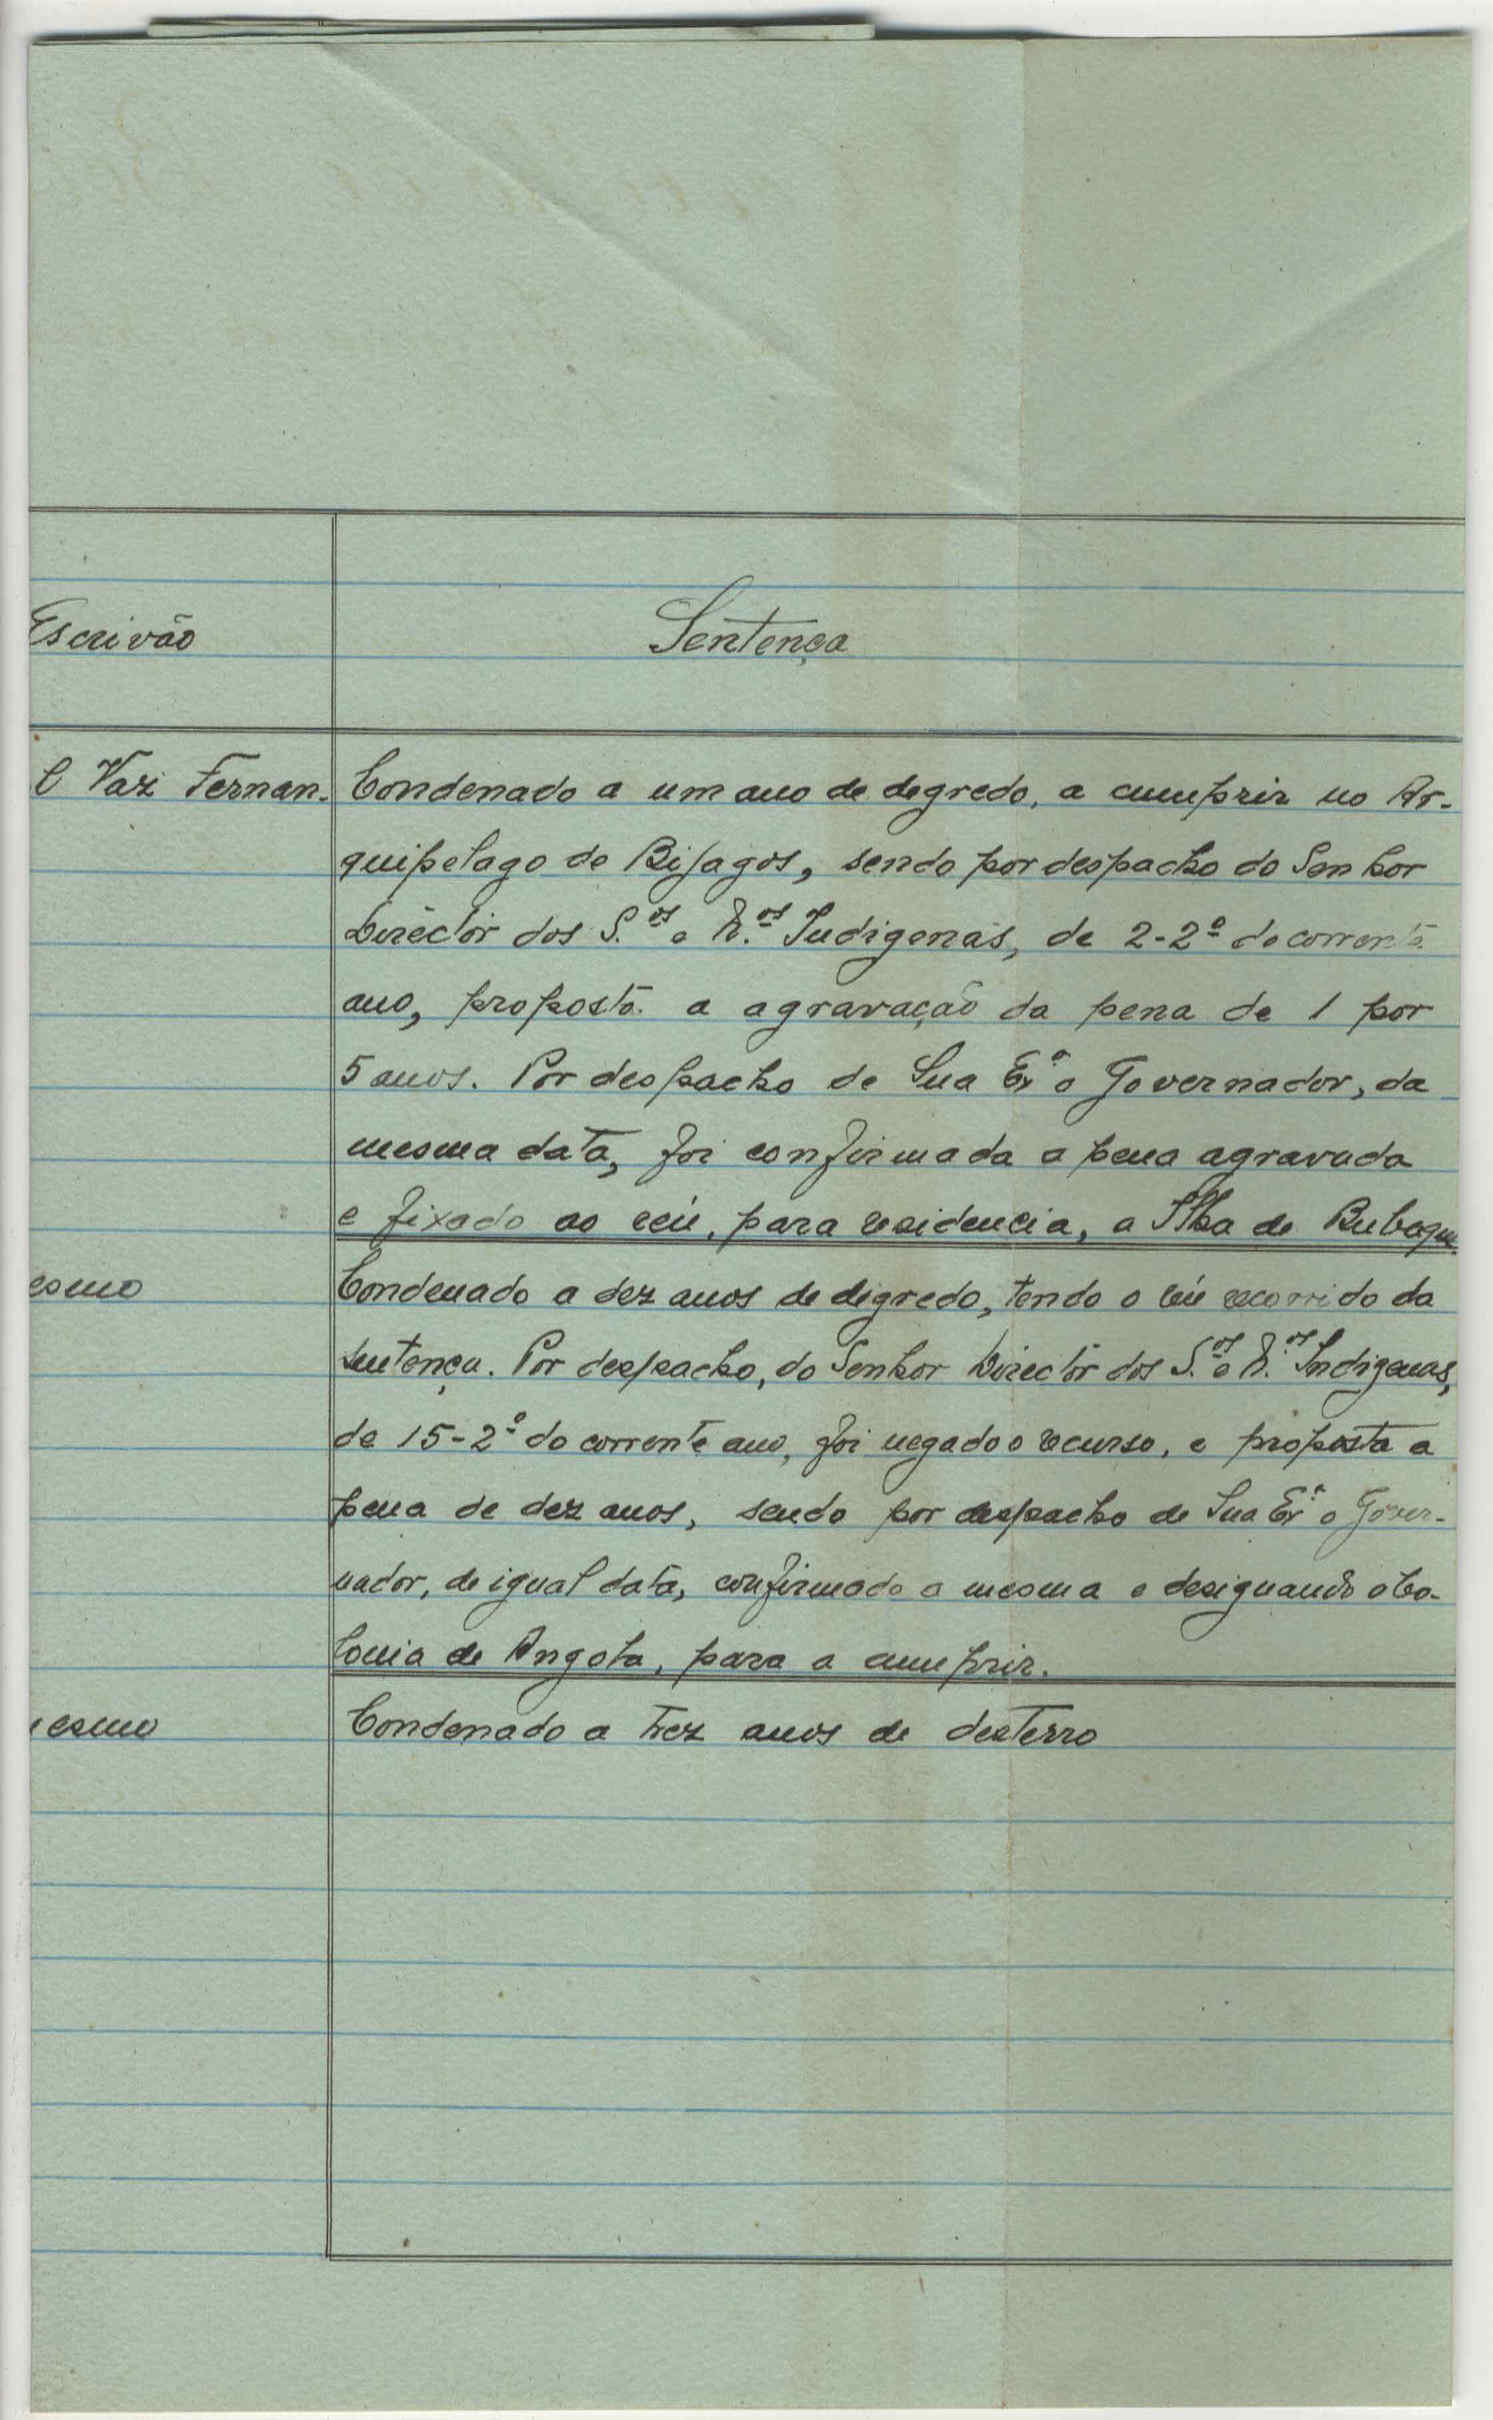 Escrivão
Sentença
l Vaz Fernan-
Condenado a um ano de degredo, a cumprir no Ar-
quipelago de Bijagos, sendo por despacho do Senhor
Diréctór dos S.os e N.os Indigenas, de 2-2º do corrente
ano, proposta a agravação da pena de 1 por
5 anos. Por despacho de Sua Exª o Governador, da
mesma data, foi confirmada a pena agravada
e fixado ao réu, para residencia, a Ilha de Bubaque.
esmo
Condenado a dez anos de degredo, tendo o réu recorrido da
sentença. Por despacho, do Senhor Diréctór dos S.os e N.os Indigenas,
de 15-2º do corrente ano, foi negado o recurso, e proposta a
pena de dez anos, sendo por despacho de Sua Exª o Gover-
nador, de igual data, confirmado a mesma e designando a Co-
lonia de Angola, para a cumprir.
esmo
Condenado a trez anos de desterro